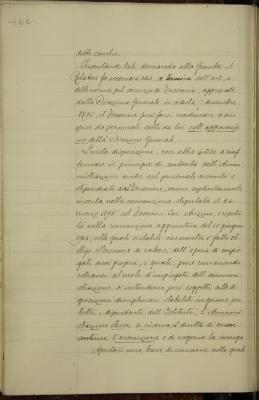 162.
debba cambiar.
Presentando tale domanda alla Giunta il
Relatore fa osservare che, a termini dell'art. 4
delle norme pel servizio di Tesoreria, approvate
dalla Direzione Generale in seduta 7 dicembre
1895, il Tesoriere può farsi coadiuvare a sue
spese da personale scelto da lui coll'approvazio
ne della Direzione Generale.
Questa disposizione, con altre intese a riaf
fermare il principio di autorità dell'Ammi
nistrazione anche sul personale assunto e
stipendiato dal Tesoriere, venne esplicitamente
inserita nella convenzione stipulata il 22
marzo 1898 col Tesoriere Cav.
nella convenzione aggiuntiva del 10 giugno
1903, colle quali è stabilito
bligo al Tesoriere di valersi, dell'opera di impie
gati suoi propri, i quali, pur rimanendo
estranei al ruolo d'impiegati dell'ammini
strazione, si intendono però soggetti alle di
sposizioni disciplinari stabilite in genere per
tutti i dipendenti dell'Istituto; l'Ammini
strazione stessa si riserva il diritto di accon
sentirne l'assunzione e di esigerne la surroga.
Apertasi una breve discussione nella quale